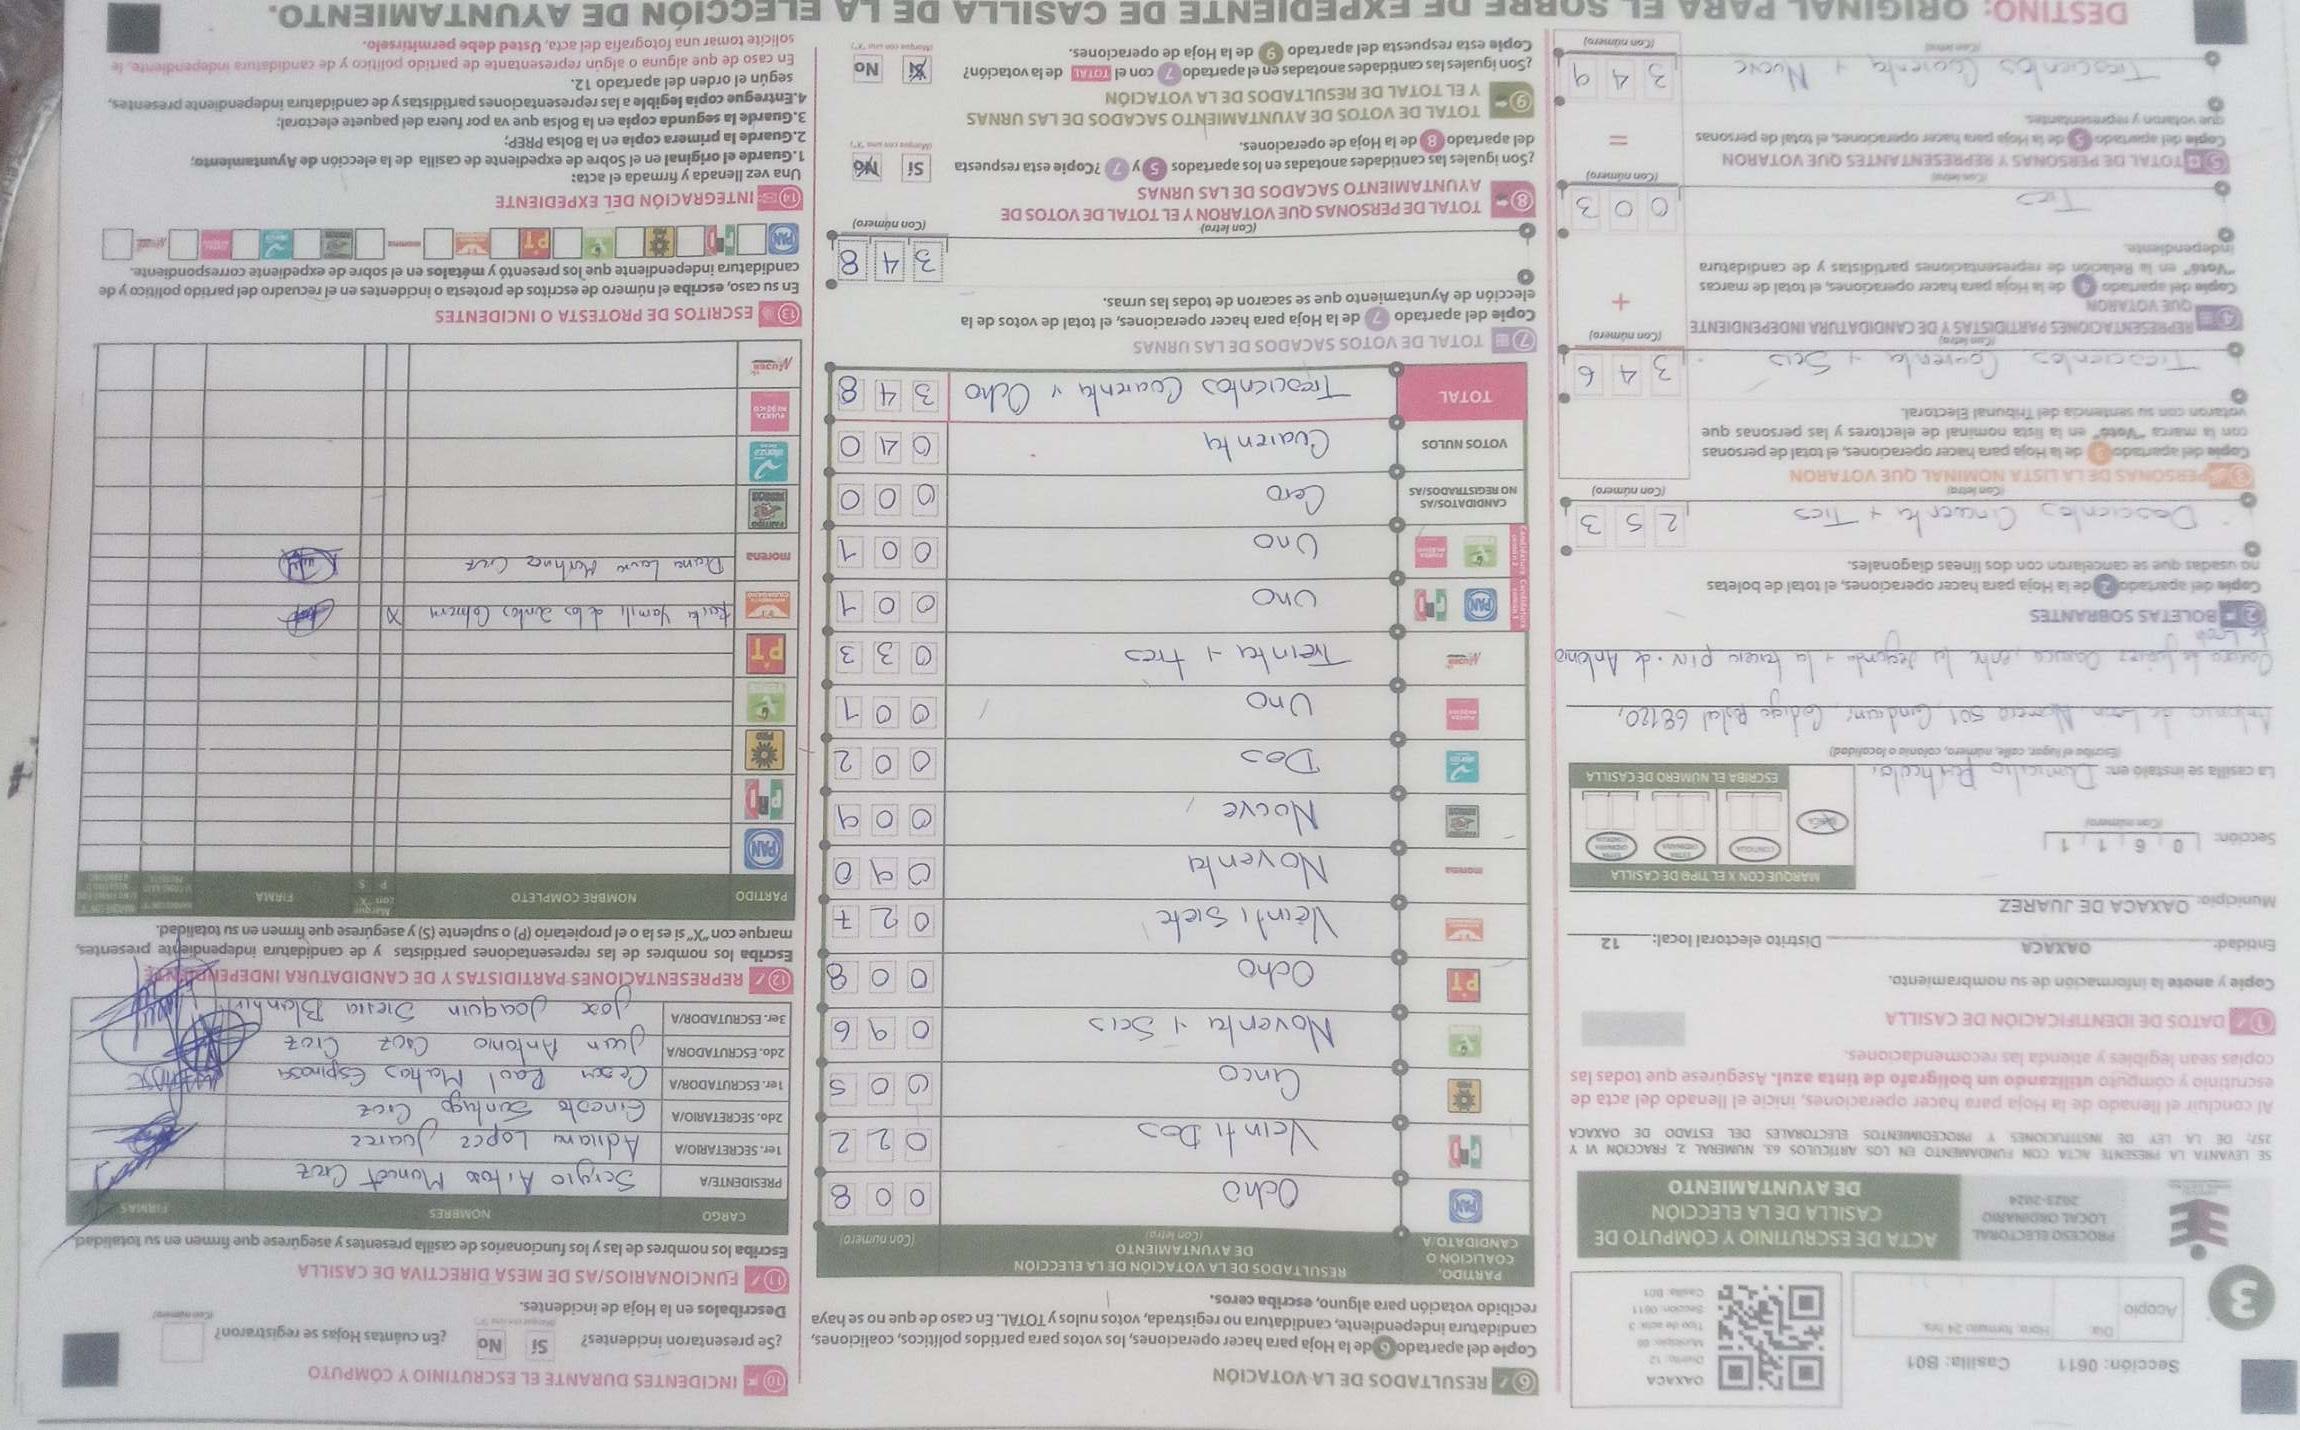 3
Acopio
Día:
Hora, formato 24 hrs.
Sección: 0611
Casilla: B01
OAXACA
Distrito: 12
Tipo de acta: 3
Sección: 0611
Casilla: B01
PROCESO ELECTORAL
LOCAL ORDINARIO
2023-2024
ACTA DE ESCRUTINIO Y CÓMPUTO DE
CASILLA DE LA ELECCIÓN
DE AYUNTAMIENTO
SE LEVANTA LA PRESENTE ACTA CON FUNDAMENTO EN LOS ARTÍCULOS 63, NUMERAL 2, FRACCIÓN VI Y
257; DE LA LEY DE INSTITUCIONES Y PROCEDIMIENTOS ELECTORALES DEL ESTADO DE OAXACA
Al concluir el llenado de la Hoja para hacer operaciones, inicie el llenado del acta de
escrutinio y cómputo utilizando un bolígrafo de tinta azul. Asegúrese que todas las
copias sean legibles y atienda las recomendaciones.
1 DATOS DE IDENTIFICACIÓN DE CASILLA
Copie y anote la información de su nombramiento.
Entidad: OAXACA Distrito electoral local: 12
Municipio: OAXACA DE JUAREZ
Sección: 0 6 1 1
(Con número)
MARQUE CON X EL TIPO DE CASILLA
BÁSICA
CONTIGUA
EXTRA
ORDINARIA
EXTRA
ORDINARIA
CONTIGUA
ESCRIBA EL NÚMERO DE CASILLA
La casilla se instaló en: Domicilio Particular,
(Escriba el lugar, calle, número, colonia o localidad)
Antonio de Leon, Número 501, Candiani, Código Postal 68120,
Oaxaca de Juárez Oaxaca, entre la segunda y la tercera priv. de Antonio
de León
2 BOLETAS SOBRANTES
Copie del apartado 2 de la Hoja para hacer operaciones, el total de boletas
no usadas que se cancelaron con dos líneas diagonales.
Doscientos Cincuenta y Tres 2 5 3
(Con letra) (Con número)
3 PERSONAS DE LA LISTA NOMINAL QUE VOTARON
Copie del apartado 3 de la Hoja para hacer operaciones, el total de personas
con la marca "Votó" en la lista nominal de electores y las personas que
votaron con su sentencia del Tribunal Electoral.
Trescientos Cuarenta y Seis 3 4 6
(Con letra) (Con número)
4 REPRESENTACIONES PARTIDISTAS Y DE CANDIDATURA INDEPENDIENTE
QUE VOTARON
Copie del apartado 4 de la Hoja para hacer operaciones, el total de marcas
"Votó" en la Relación de representaciones partidistas y de candidatura
independiente.
+
Tres 0 0 3
(Con letra) (Con número)
5 TOTAL DE PERSONAS Y REPRESENTANTES QUE VOTARON
Copie del apartado 5 de la Hoja para hacer operaciones, el total de personas
que votaron y representantes.
=
Trescientos Cuarenta y Nueve 3 4 9
(Con letra) (Con número)
6 RESULTADOS DE LA VOTACIÓN
Copie del apartado 6 de la Hoja para hacer operaciones, los votos para partidos políticos, coaliciones,
candidatura independiente, candidatura no registrada, votos nulos y TOTAL. En caso de que no se haya
recibido votación para alguno, escriba ceros.
PARTIDO,
COALICIÓN O
CANDIDATO/A
RESULTADOS DE LA VOTACIÓN DE LA ELECCIÓN
DE AYUNTAMIENTO
(Con letra)
(Con número)
PAN Ocho 0 0 8
PRI Veinti Dos 0 2 2
PRD Cinco 0 0 5
VERDE Noventa y Seis 0 9 6
PT Ocho 0 0 8
Veinti Siete 0 2 7
morena Noventa 0 9 0
Nueve 0 0 9
Dos 0 0 2
Uno 0 0 1
Treinta y tres 0 3 3
Candidatura común 1 PAN PRI Uno 0 0 1
Candidatura común 2 VERDE Uno 0 0 1
CANDIDATOS/AS
NO REGISTRADOS/AS Cero 0 0 0
VOTOS NULOS Cuarenta 0 4 0
TOTAL Trescientos Cuarenta y Ocho 3 4 8
7 TOTAL DE VOTOS SACADOS DE LAS URNAS
Copie del apartado 7 de la Hoja para hacer operaciones, el total de votos de la
elección de Ayuntamiento que se sacaron de todas las urnas.
3 4 8
(Con letra) (Con número)
8 TOTAL DE PERSONAS QUE VOTARON Y EL TOTAL DE VOTOS DE
AYUNTAMIENTO SACADOS DE LAS URNAS
¿Son iguales las cantidades anotadas en los apartados 5 y 7? Copie esta respuesta
del apartado 8 de la Hoja de operaciones.
Sí No
(Marque con una "X")
9 TOTAL DE VOTOS DE AYUNTAMIENTO SACADOS DE LAS URNAS
Y EL TOTAL DE RESULTADOS DE LA VOTACIÓN
¿Son iguales las cantidades anotadas en el apartado 7 con el TOTAL de la votación?
Copie esta respuesta del apartado 9 de la Hoja de operaciones.
Sí No
(Marque con una "X")
10 INCIDENTES DURANTE EL ESCRUTINIO Y CÓMPUTO
¿Se presentaron incidentes? Sí No ¿En cuántas Hojas se registraron?
(Marque con una "X") (Con número)
Descríbalos en la Hoja de incidentes.
11 FUNCIONARIOS/AS DE MESA DIRECTIVA DE CASILLA
Escriba los nombres de las y los funcionarios de casilla presentes y asegúrese que firmen en su totalidad.
CARGO NOMBRES FIRMAS
PRESIDENTE/A Sergio Cruz
1er. SECRETARIO/A Adriana Lopez Juarez
2do. SECRETARIO/A Ernesto Santiago Cruz
1er. ESCRUTADOR/A Cesar Raul Matias Espinosa
2do. ESCRUTADOR/A Juan Antonio Cruz Cruz
3er. ESCRUTADOR/A Jose Joaquin Sierra
12 REPRESENTACIONES PARTIDISTAS Y DE CANDIDATURA INDEPENDIENTE
Escriba los nombres de las representaciones partidistas y de candidatura independiente presentes,
marque con "X" si es la o el propietario (P) o suplente (S) y asegúrese que firmen en su totalidad.
PARTIDO NOMBRE COMPLETO Marque con "X" P S FIRMA
PAN
PRI
PRD
VERDE
PT
Yamili de los Santos X
morena Diana Laura Martinez Cruz
13 ESCRITOS DE PROTESTA O INCIDENTES
En su caso, escriba el número de escritos de protesta o incidentes en el recuadro del partido político y de
candidatura independiente que los presentó y métalos en el sobre de expediente correspondiente.
PAN PRI PRD VERDE PT morena
14 INTEGRACIÓN DEL EXPEDIENTE
Una vez llenada y firmada el acta:
1. Guarde el original en el Sobre de expediente de casilla de la elección de Ayuntamiento;
2. Guarde la primera copia en la Bolsa PREP;
3. Guarde la segunda copia en la Bolsa que va por fuera del paquete electoral;
4. Entregue copia legible a las representaciones partidistas y de candidatura independiente presentes,
según el orden del apartado 12.
En caso de que alguna o algún representante de partido político y de candidatura independiente, le
solicite tomar una fotografía del acta, Usted debe permitírselo.
DESTINO: ORIGINAL PARA EL SOBRE DE EXPEDIENTE DE CASILLA DE LA ELECCIÓN DE AYUNTAMIENTO.